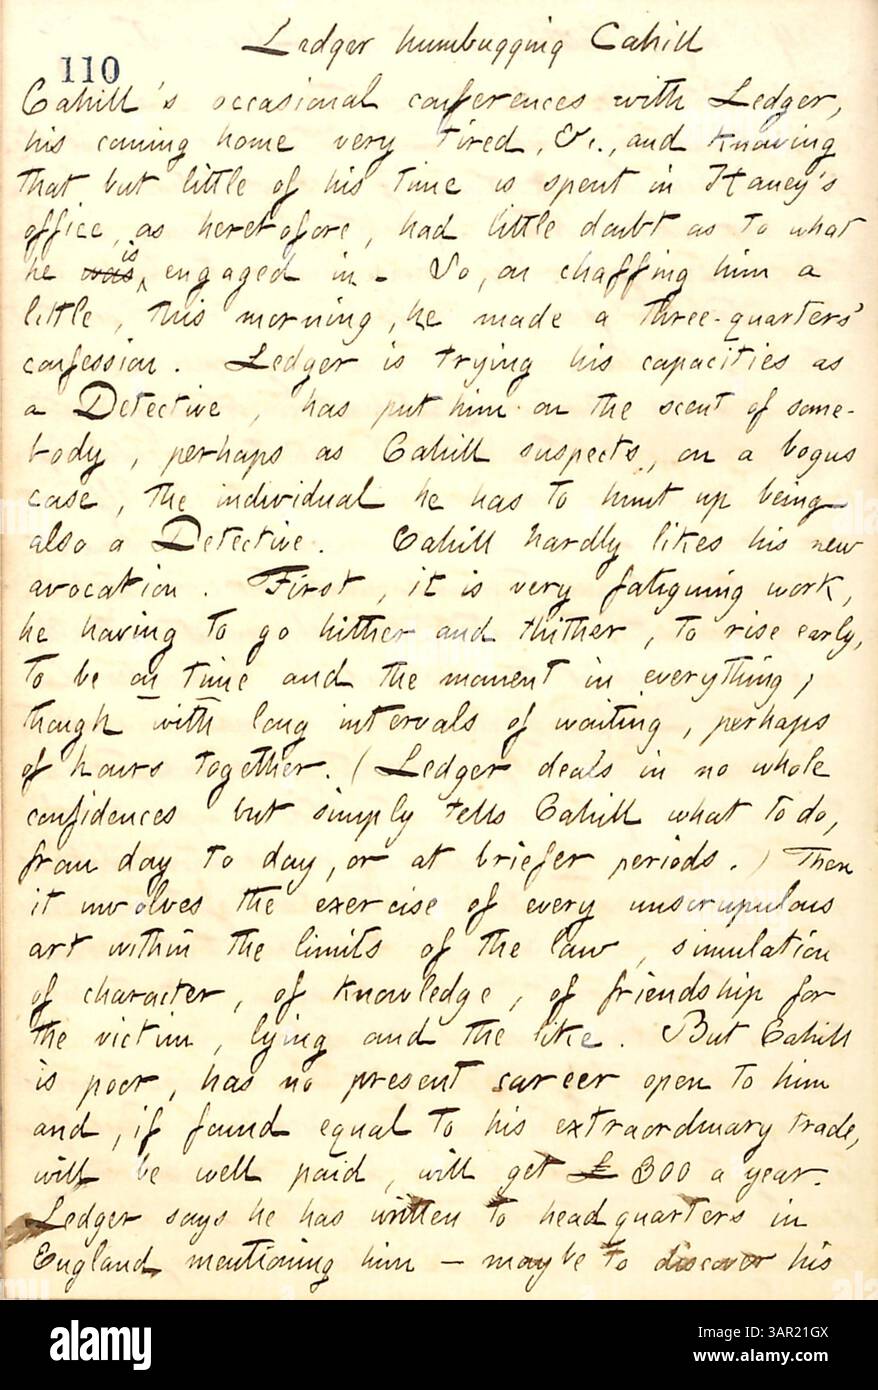 Ledger humbugging Cahill
110
Cahill's occasional conferences with Ledger,
his coming home very tired, &c., and knowing
that but little of his time is spent in Haney's
office, as heretofore, had little doubt as to what
he was is engaged in. So, on chaffing him a
little, this morning, he made a three-quarters'
confession. Ledger is trying his capacities as
a Detective, has put him on the scent of some-
body, perhaps as Cahill suspects, on a bogus
case, the individual he has to hunt up being
also a Detective. Cahill hardly likes his new
avocation. First, it is very fatiguing work,
he having to go hither and thither, to rise early,
to be on time and the moment in everything,
though with long intervals of waiting, perhaps
of hours together. (Ledger deals in no whole
confidences but simply tells Cahill what to do,
from day to day, or at briefer periods.) Then
it involves the exercise of every unscrupulous
art within the limits of the law, simulation
of character, of knowledge, of friendship for
the victim, lying and the like. But Cahill
is poor, has no present career open to him
and, if found equal to his extraordinary trade,
will be well paid, will get £300 a year.
Ledger says he has written to head quarters in
England, mentioning him — may be to discover his
alamy
Image ID: 3AR21GX
www.alamy.com